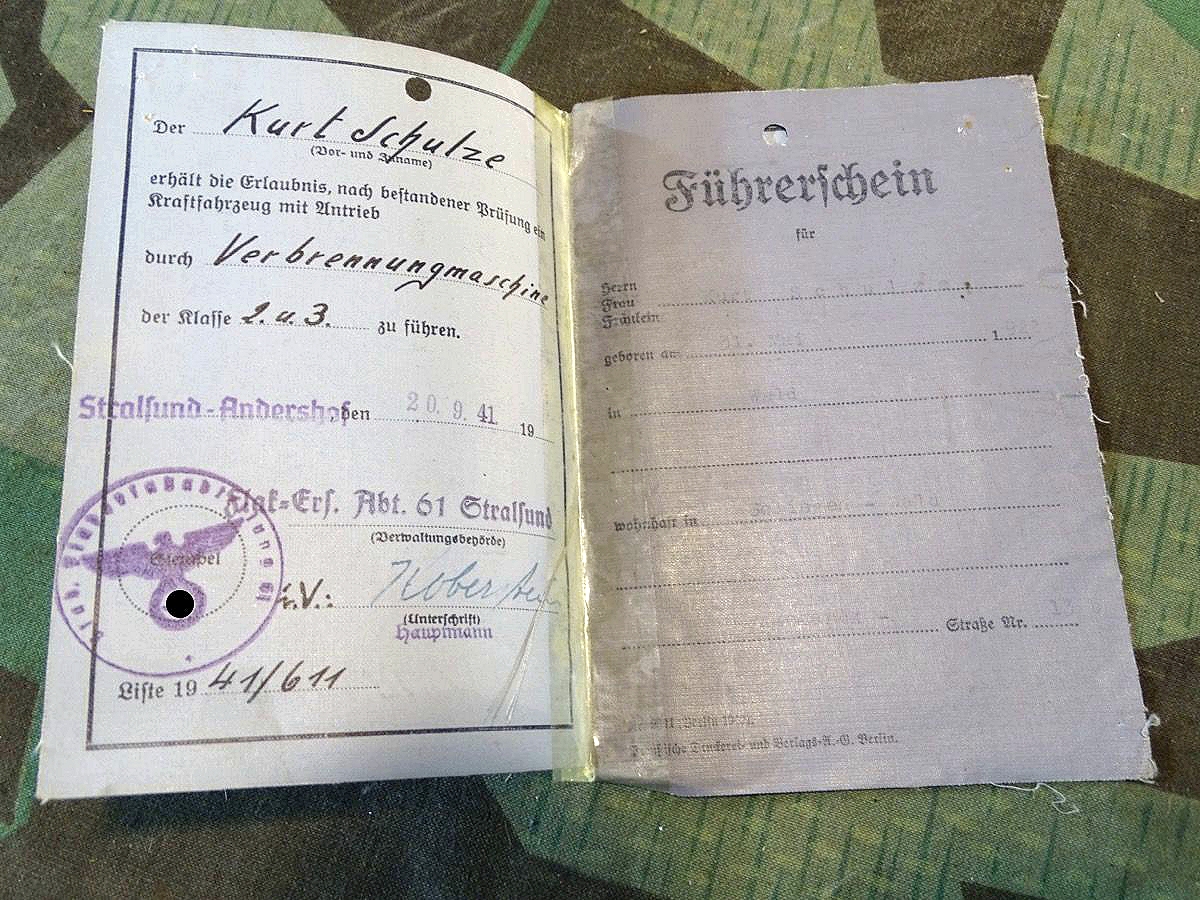 Der Kurt Schulze
(Vor- und Zuname)
erhält die Erlaubnis, nach bestandener Prüfung ein
Kraftfahrzeug mit Antrieb
durch Verbrennungmaschine
der Klasse 2. u. 3. zu führen.
Stralsund-Andershof, den 20. 9. 41 19
Flak-Ers. Abt. 61 Stralsund
(Verwaltungsbehörde)
Stempel
i.V.:
(Unterschrift)
Hauptmann
Liste 19 41/611
Führerschein
für
Herrn
Frau
Fräulein
Kurt Schulze
geboren am 31. Mai 1
in Wald
wohnhaft in
Straße Nr.
Berlin
Druckerei- und Verlags-A.-G. Berlin.